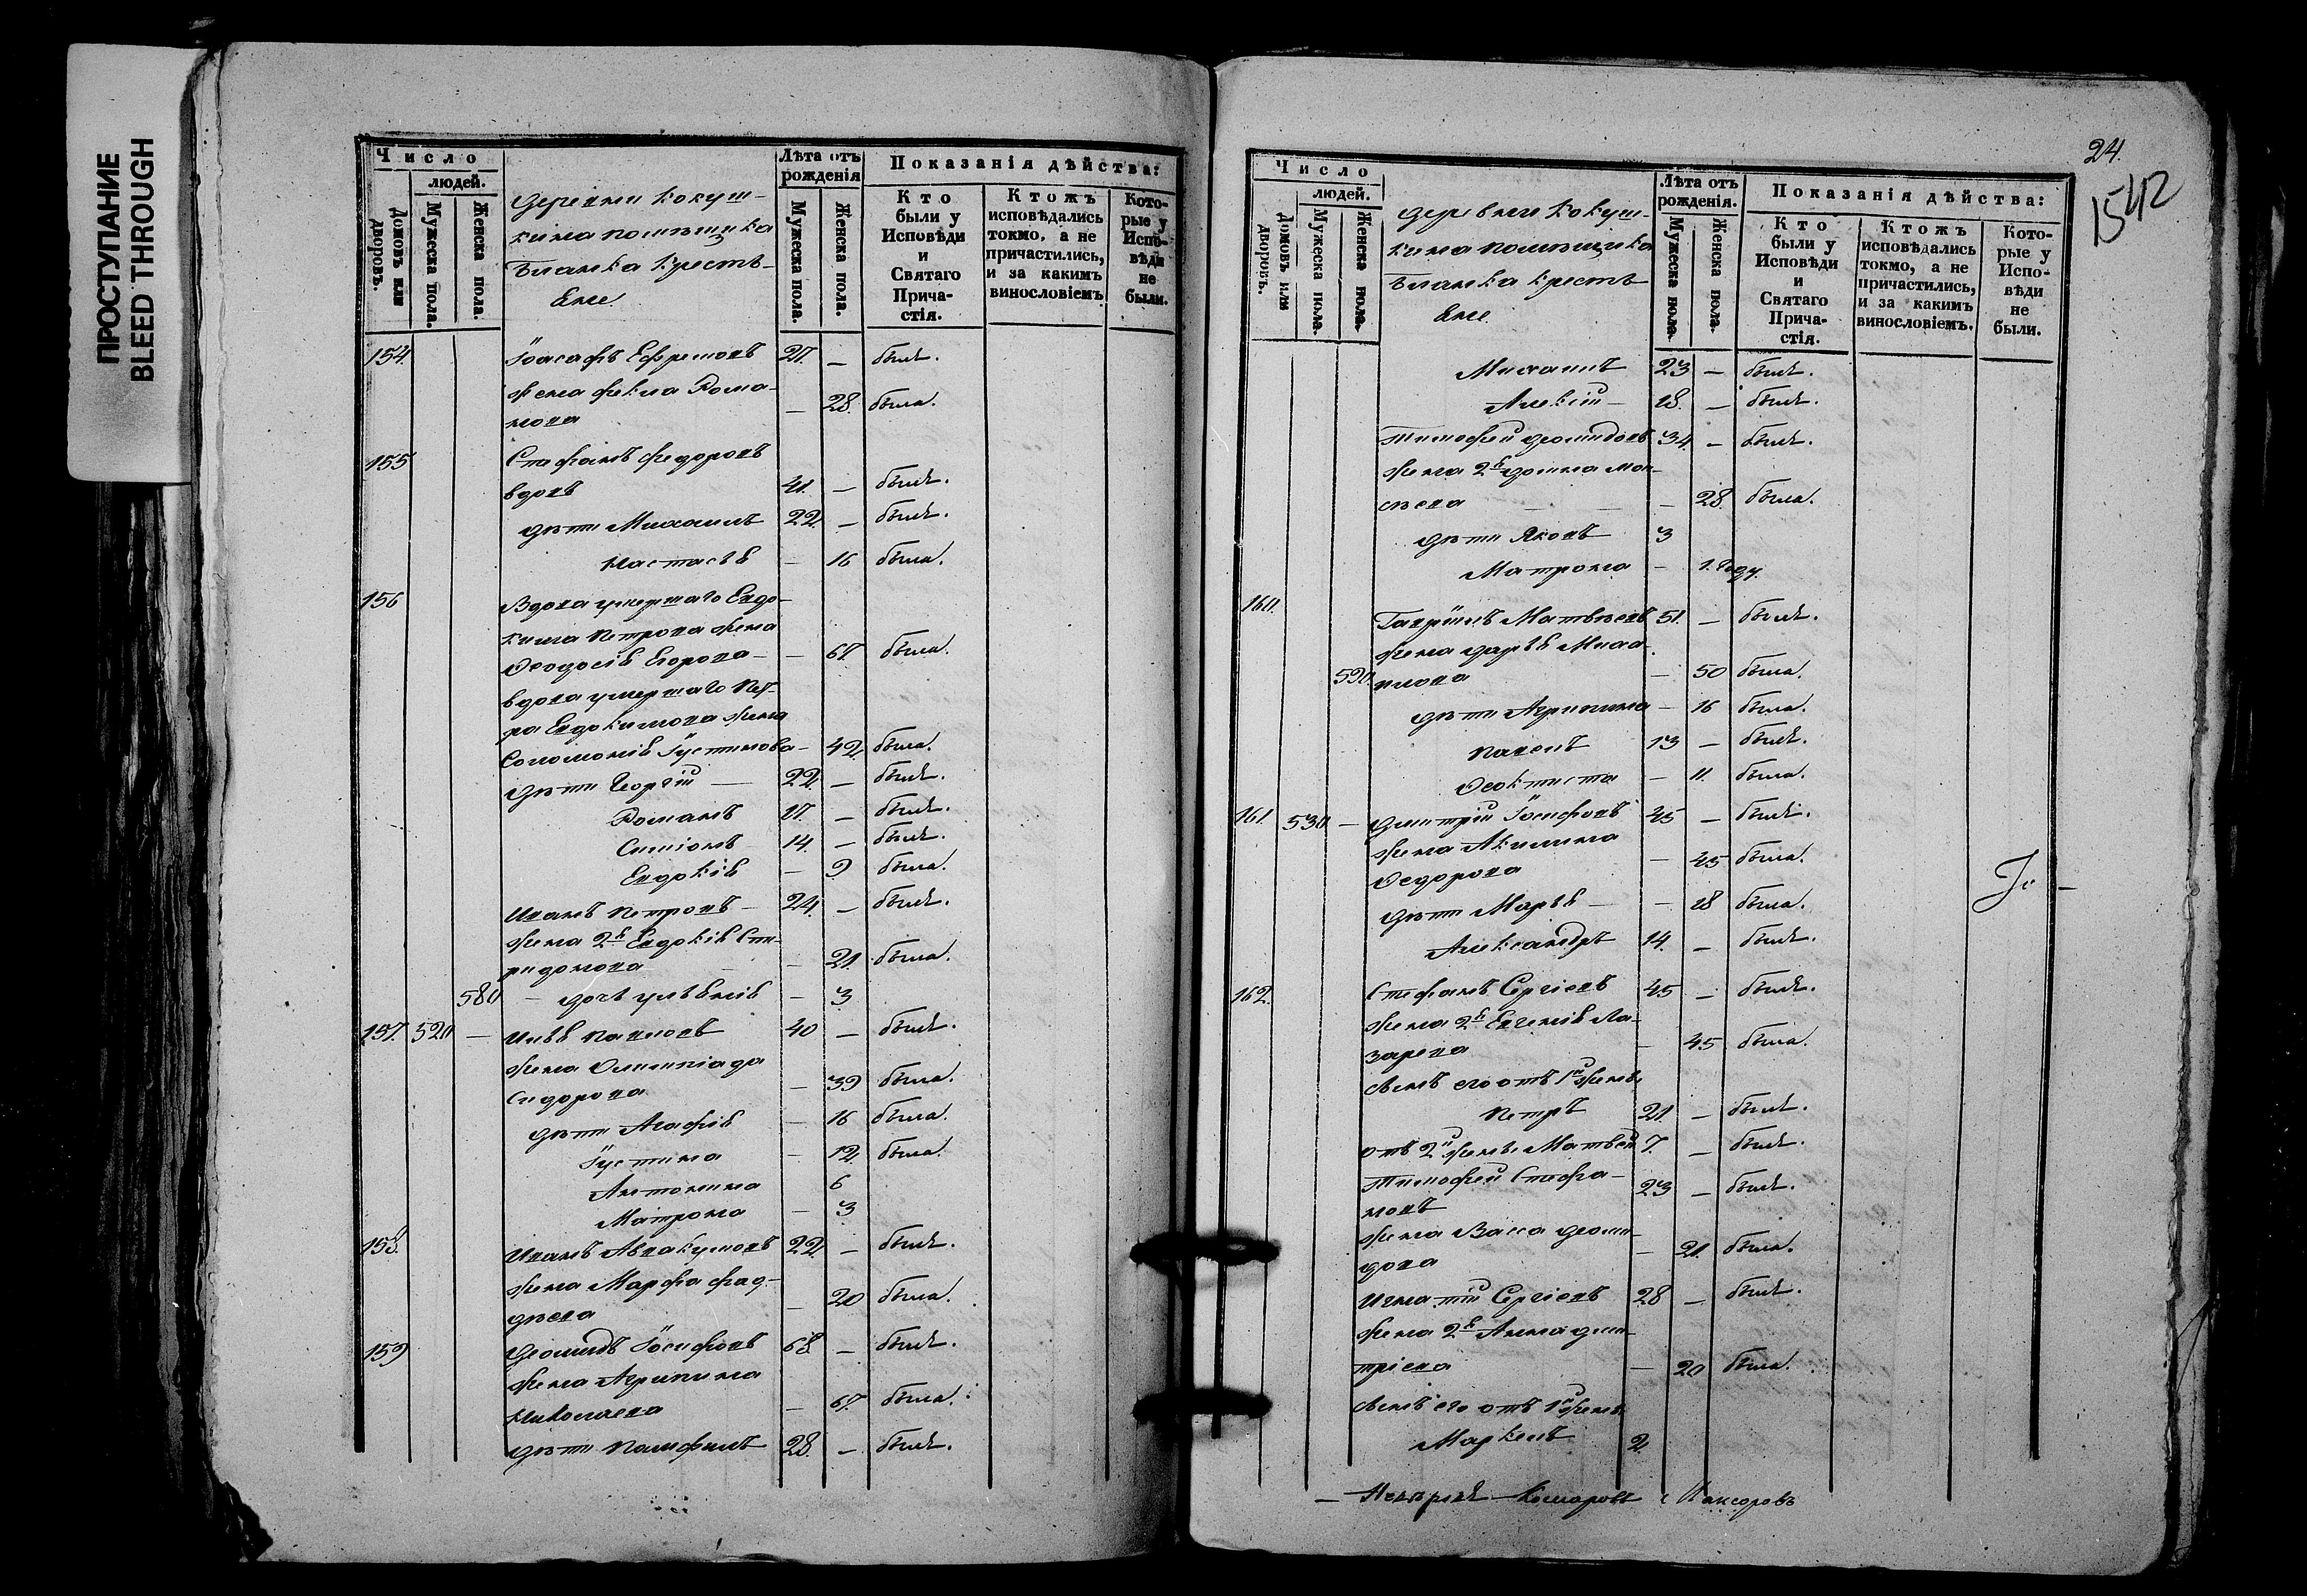 ПРОСТУПАНИЕ
BLEED THROUGH
Число
людей.
Домовъ или дворовъ.
Мужеска пола.
Женска пола.
деревни Кокуш-
кина помѣщика
Бланка кресть-
Ене.
Лѣта отъ рожденія
Мужеска пола.
Женска пола.
Показанія дѣйства:
Кто были у Исповѣди и Святаго Прича-стія.
Ктожъ исповѣдались токмо, а не причастились, и за какимъ винословіемъ
Кото-рые у Испо-вѣди не были.
154. Іоасафъ Ефремовъ 27. — былъ.
жена Фекла Рома-
нова — 28. была.
155 Стефанъ Федоровъ
вдовъ 41. — былъ.
дѣти Михаилъ 22. — былъ.
Настасья — 16 была.
156 Вдова умершаго Евдо-
кима Петрова жена
Ѳеодосія Егорова — — 67. была.
вдова умершаго Пет-
ра Евдокимова жена
Соломонія Іустинова — 42. была.
дѣти Георгій — 22. — былъ.
Романъ 17. — былъ.
Симіонъ 14. — былъ.
Евдокія — 9 была.
Иванъ Петровъ — 24. — былъ.
жена 2я Евдокія Спи-
ридонова — 21. была.
580 — дочь Ульянія — 3
157. 520 — Илья Павловъ 40 — былъ.
жена Олимпіада
Сидорова — 39 была.
дѣти Агафія — 16 была.
Іустина — 12. была.
Антонина 6
Матрона — 3
158. Иванъ Аввакумовъ 22. — былъ.
жена Марфа Фад-
дѣева — 20 была.
159 Деомидъ Іосифовъ 68. — былъ.
жена Агрипина
Николаева — 67. была.
дѣти Памфилъ 28. — былъ.
24.
1542
Число
людей.
Домовъ или дворовъ.
Мужеска пола.
Женска пола.
деревни Кокуш-
кина помѣщика
Бланка кресть
Ене.
Лѣта отъ рожденія.
Мужеска пола.
Женска пола.
Показанія дѣйства:
Кто были у Исповѣди и Святаго Прича-стія.
Ктожъ исповѣдались токмо, а не причастились, и за какимъ винословіемъ.
Кото-рые у Испо-вѣди не были.
Михаилъ 23 — былъ.
Алексій — 18. — былъ.
Тимофей Деомидовъ 34. — былъ.
жена 2я Домна Мои-
сѣева — 28. была.
дѣти Яковъ 3
Матрона — 1. году.
160. Гавріилъ Матвѣевъ 51. — былъ.
жена Дарья Миха-
590. илова — 50 была.
дѣти Агрипина — 16 была.
Павелъ 13 — былъ.
Ѳеоктиста — 11. была.
161. 530 — Димитрій Іосифовъ 45 — былъ.
жена Акилина
Ѳедорова — 45 была.
дѣти Марья — — 18 была.
Александръ 14. — былъ.
162. Стефанъ Сергіевъ 45 — былъ.
жена 2я Евгенія Ла-
зарева — 45 была.
сынъ его отъ 1й жены
Петръ 21. — былъ.
отъ 2й жены Матвей 7. — былъ.
Тимофей Стефа-
новъ 23 — былъ.
жена Васса Деоми-
дова — 21. была.
Игнатій Сергіевъ 28 — былъ.
жена 2я Анна Дми-
тріева — 20 была.
сынъ его отъ 1й жены
Маркелъ 2.